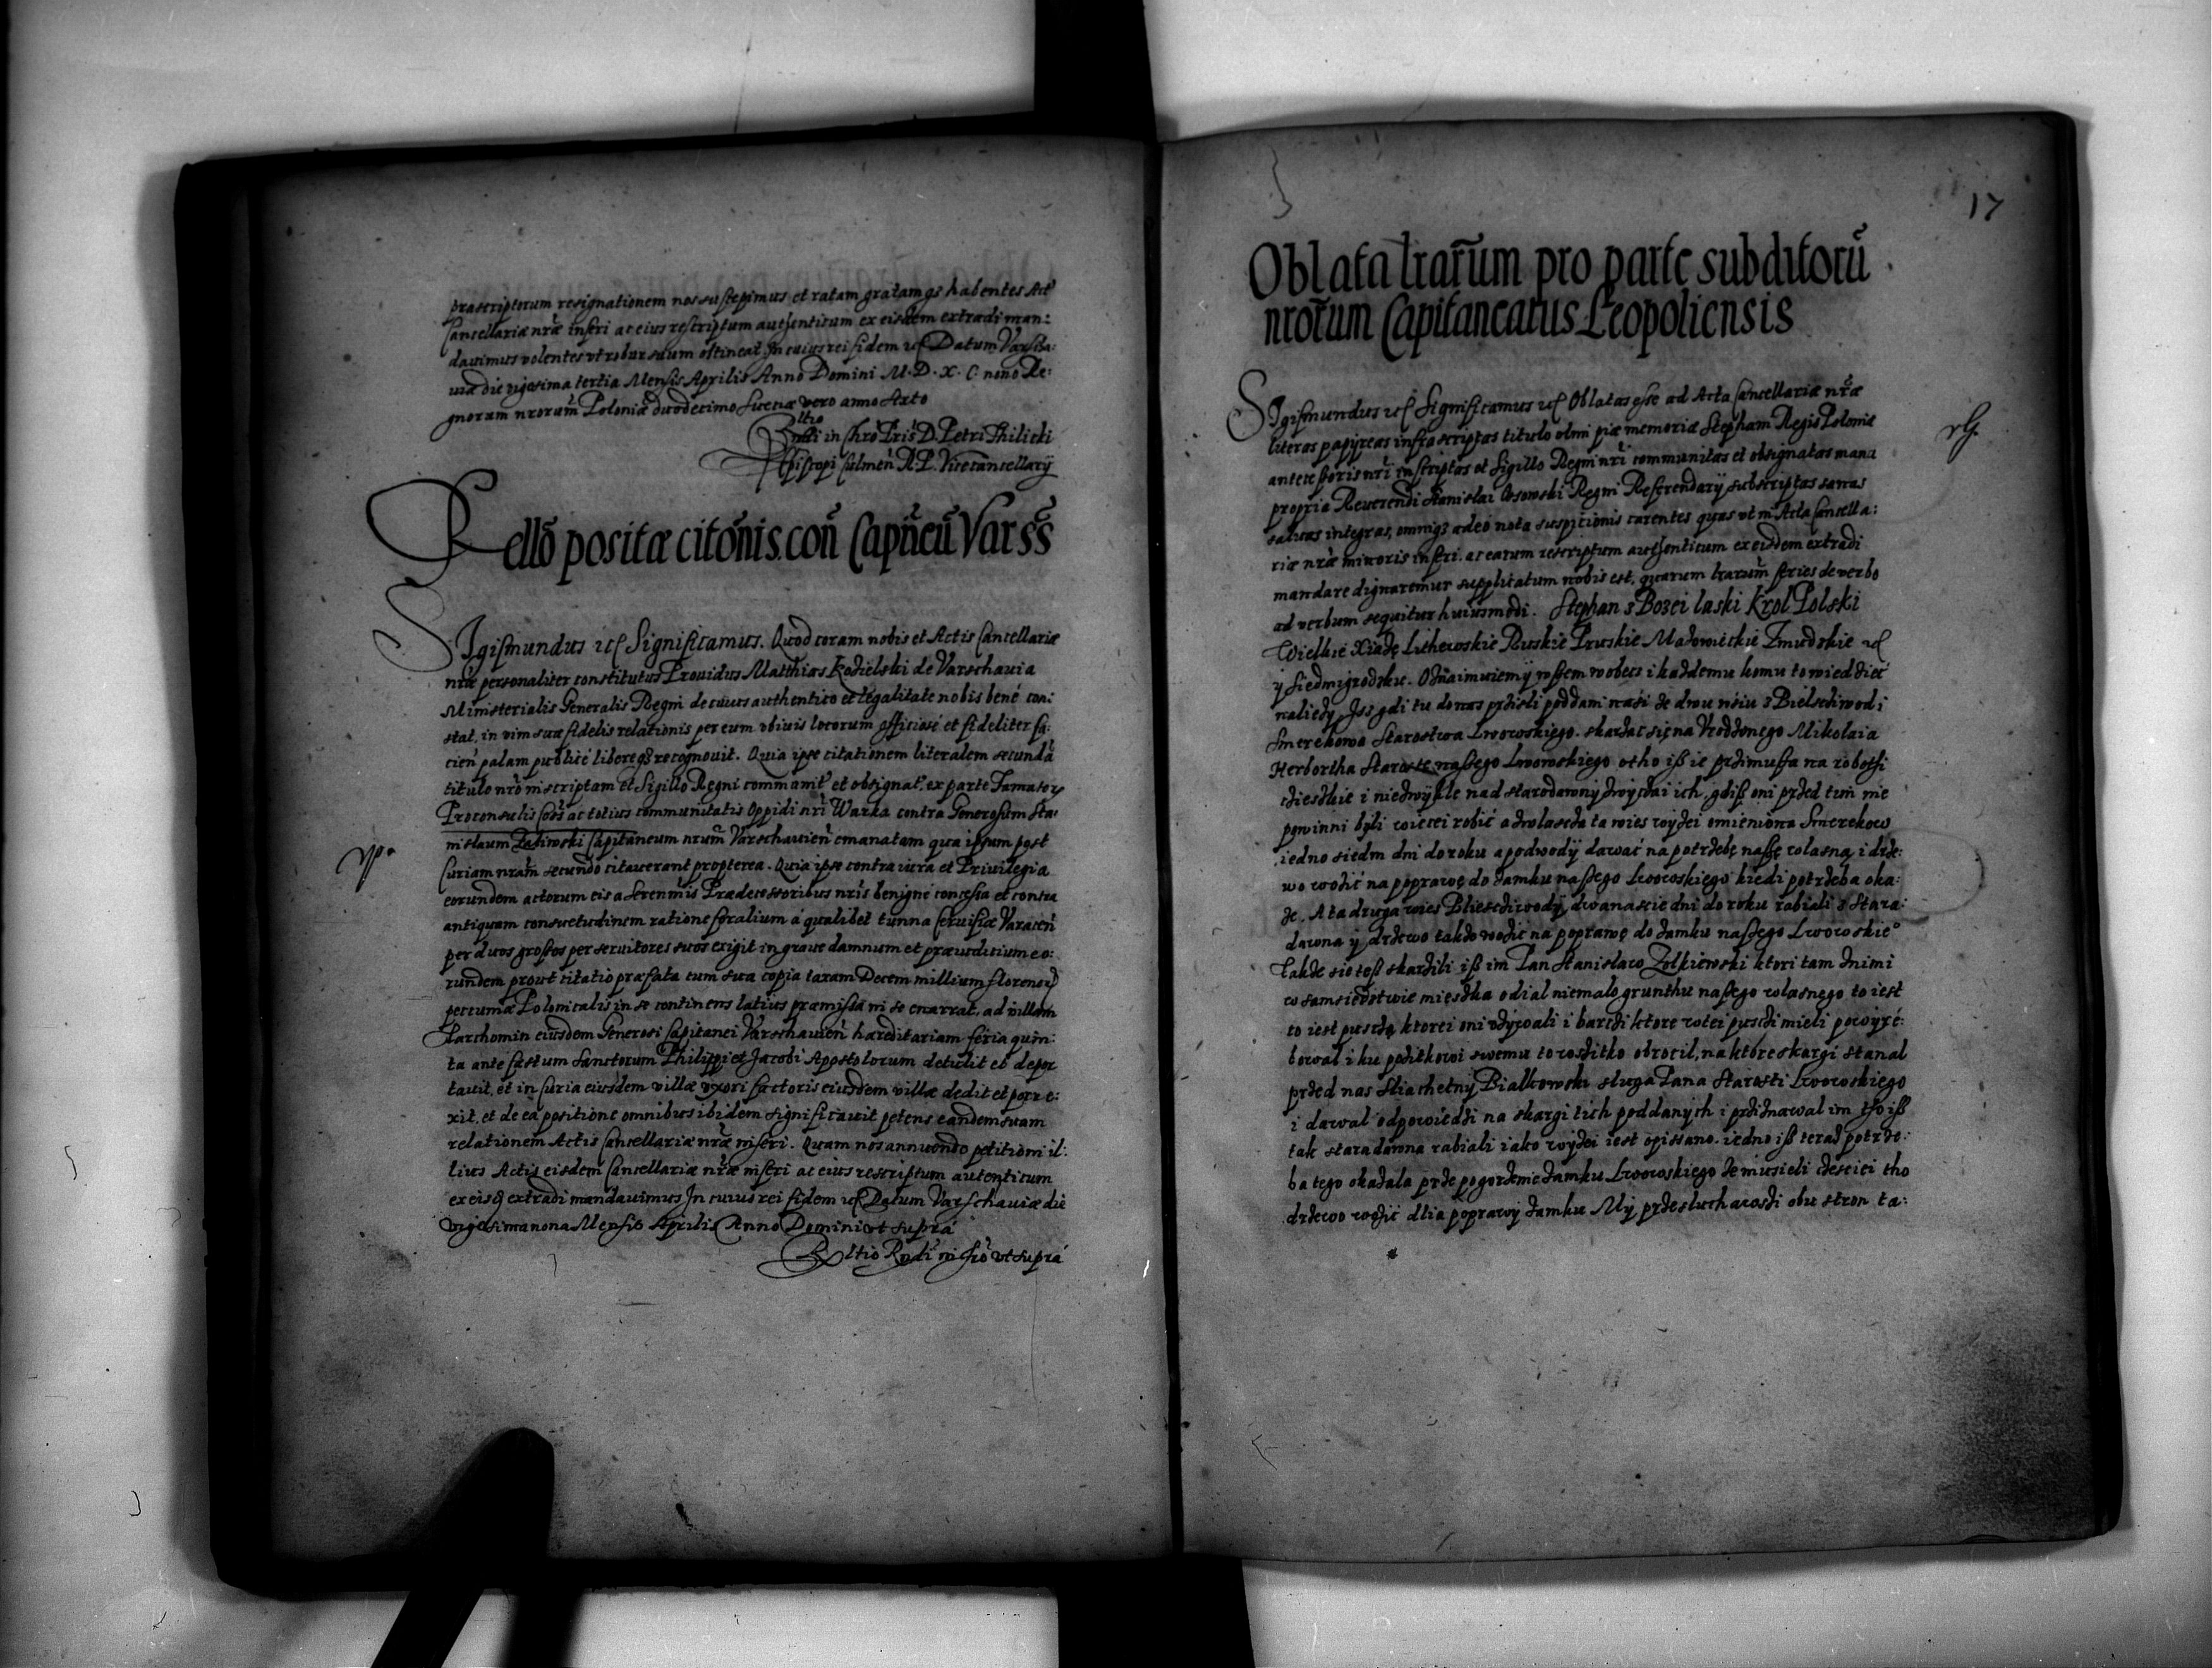 præscriptorum resignationem nos suscepimus et ratam gratamq3 habentes Act
Cancellariæ nrae inseri ac eius rescriptum authenticum ex eisdem extradi man:
dauimus volentes vt robur suum obtineat In cuius rei fidem etc Datum Varscha:
uiæ die vigesima tertia Mensis Aprilis Anno Domini M. D. X. C. nono Re:
gnorum nrorum Poloniæ duodecimo Sueciæ vero anno sexto
Rltio
Rndi in Chro Pris D. Petri Thilicki
Episcopi Culmen R. P. Vicecancellarij
Rello positæ citonis con Capneu Varss
Sigismundus etc Significamus. Quod coram nobis et Actis Cancellariæ
nrae personaliter constitutus Prouidus Matthias Kozielski de Varschauia
Ministerialis Generalis Regni de cuius authentico et legalitate nobis bené con:
stat, in vim suæ fidelis relationis per eum vbiuis locorum officiosé et fideliter fa:
cien palam publicé libereq3 recognouit. Quia ipse citationem literalem secundã
titulo nro inscriptam et Sigillo Regni communit et obsignat. ex parte Famator
Proconsulis Coss ac totius communitatis Oppidi nri Warka contra Generosum Sta:
nislaum Capitaneum nrum Varschauien emanatam qua ipsum post
Curiam nram secundo citauerant propterea. Quia ipse contra iura et Priuilegia
eorundem actorum eis a Serenmis Prædecessoribus nris benigné concessa et contra
antiquam consuetudinem ratione foralium á qualibet tunna Ceruisiæ Varacen
per duos grossos per seruitores suos exigit in graue damnum et præiuditium eo:
rundem prout citatio præfata cum sua copia taxam Decem millium florenor
pecuniæ Polonicalis in se continens latius præmissa in se enarrat, ad villam
Parchomin eiusdem Generosi Capitanei Varschauien hæreditariam feria quin:
ta ante festum Sanctorum Philippi et Jacobi Apostolorum detulit et depor
tauit, et in curia eiusdem villæ vxori factoris eiusdem villæ dedit et porre:
xit, et de ea positione omnibus ibidem significauit petens eandem suam
relationem Actis Cancellariæ nræ inseri. Quam nos annuendo petitioni il:
lius Actis eisdem Cancellariæ nræ inseri ac eius rescriptum autenticum
ex eisd extradi mandauimus In cuius rei fidem etc Datum Varschauiæ die
vigesima nona Mensis Aprilis Anno Domini vt suprá
Rltio Rndi in Chro vt suprá
17
Oblata lrarum pro parte subditorũ
nrorum Capitaneatus Leopoliensis
Sigismundus etc Significamus etc Oblatas esse ad Acta Cancellariæ nræ
literas papyreas infrascriptas titulo olim piæ memoriæ Stephani Regis Poloniæ
antecessoris nri inscriptas et Sigillo Regni nri communitas et obsignatas manu
propria Reuerendi Stanislai Osowski Regni Referendarij subscriptas sanas
saluas integras, omniq3 adeo nota suspicionis carentes quas vt in Acta Cancella:
riæ nræ minoris inseri ac earum rescriptum authenticum ex eisdem extradi
mandare dignaremur supplicatum nobis est, quarum lrarum series de verbo
ad verbum sequitur huiusmodi. Stephan z Bozei laski Krol Polski
Wielkie Xiadzę Lithewskie Ruskie Pruskie Mazowieckie Zmudskie etc
y Siedmigrodzkie. Oznaimuiemy wssem wobecz i kazdemu komu to wiedziec
nalieży, Isz gdi tu do nas prziszli poddani naszi ze dwu wsiu z Bielschiwodi
Smerekowa Starostwa Lwowskiego. skarżac się na Vrodzonego Mikolaia
Herbortha Staroste nassego Lwowskiego otho iß ie przimussa na robothi
cziesżkie i niezwykle nad starodawny zwyczai ich, gdiß oni przed tim nie
powinni byli wiecei robić a zwlascza ta wies wyzei omieniona Smerekow
iedno siedm dni do roku a podwody dawać na potrzebę naßę wlasną i drze:
wo wozić na poprawę do zamku nassego Lwowskiego kiedi potrzeba oka:
ze. A ta druga wies Bliesczi wody dwanascie dni do roku rabiali z Stara:
dawna y drzewo takze wozić na poprawę do zamku nassego Lwowskie°
Takze sie toß skarżili iß im Pan Stanislaw Zolkiewski ktori tam z nimi
w samsiedstwie mieszka odial niemalo grunthu nassego wlasnego to iest
to iest pusczę ktorei oni vżywali i barczi ktore wtei pusczi mieli powyrę:
bowal i ku pożitkowi swemu to wszitko obrocil, na ktore skargi stanal
przed nas Sliachetny Bialkowski sluga Pana Starosti Lwowskiego
i dawal odpowiedzi na skargi tich poddanych i prziznawal im tho iß
tak staradawna rabiali iako wyżei iest opissano. iedno iß teraz potrze:
ba tego okazala prze pogorzenie zamku Lwowskiego ze musieli czesciei tho
drzewo wozić dlia poprawy zamku My przesluchawszi obu stron ta: